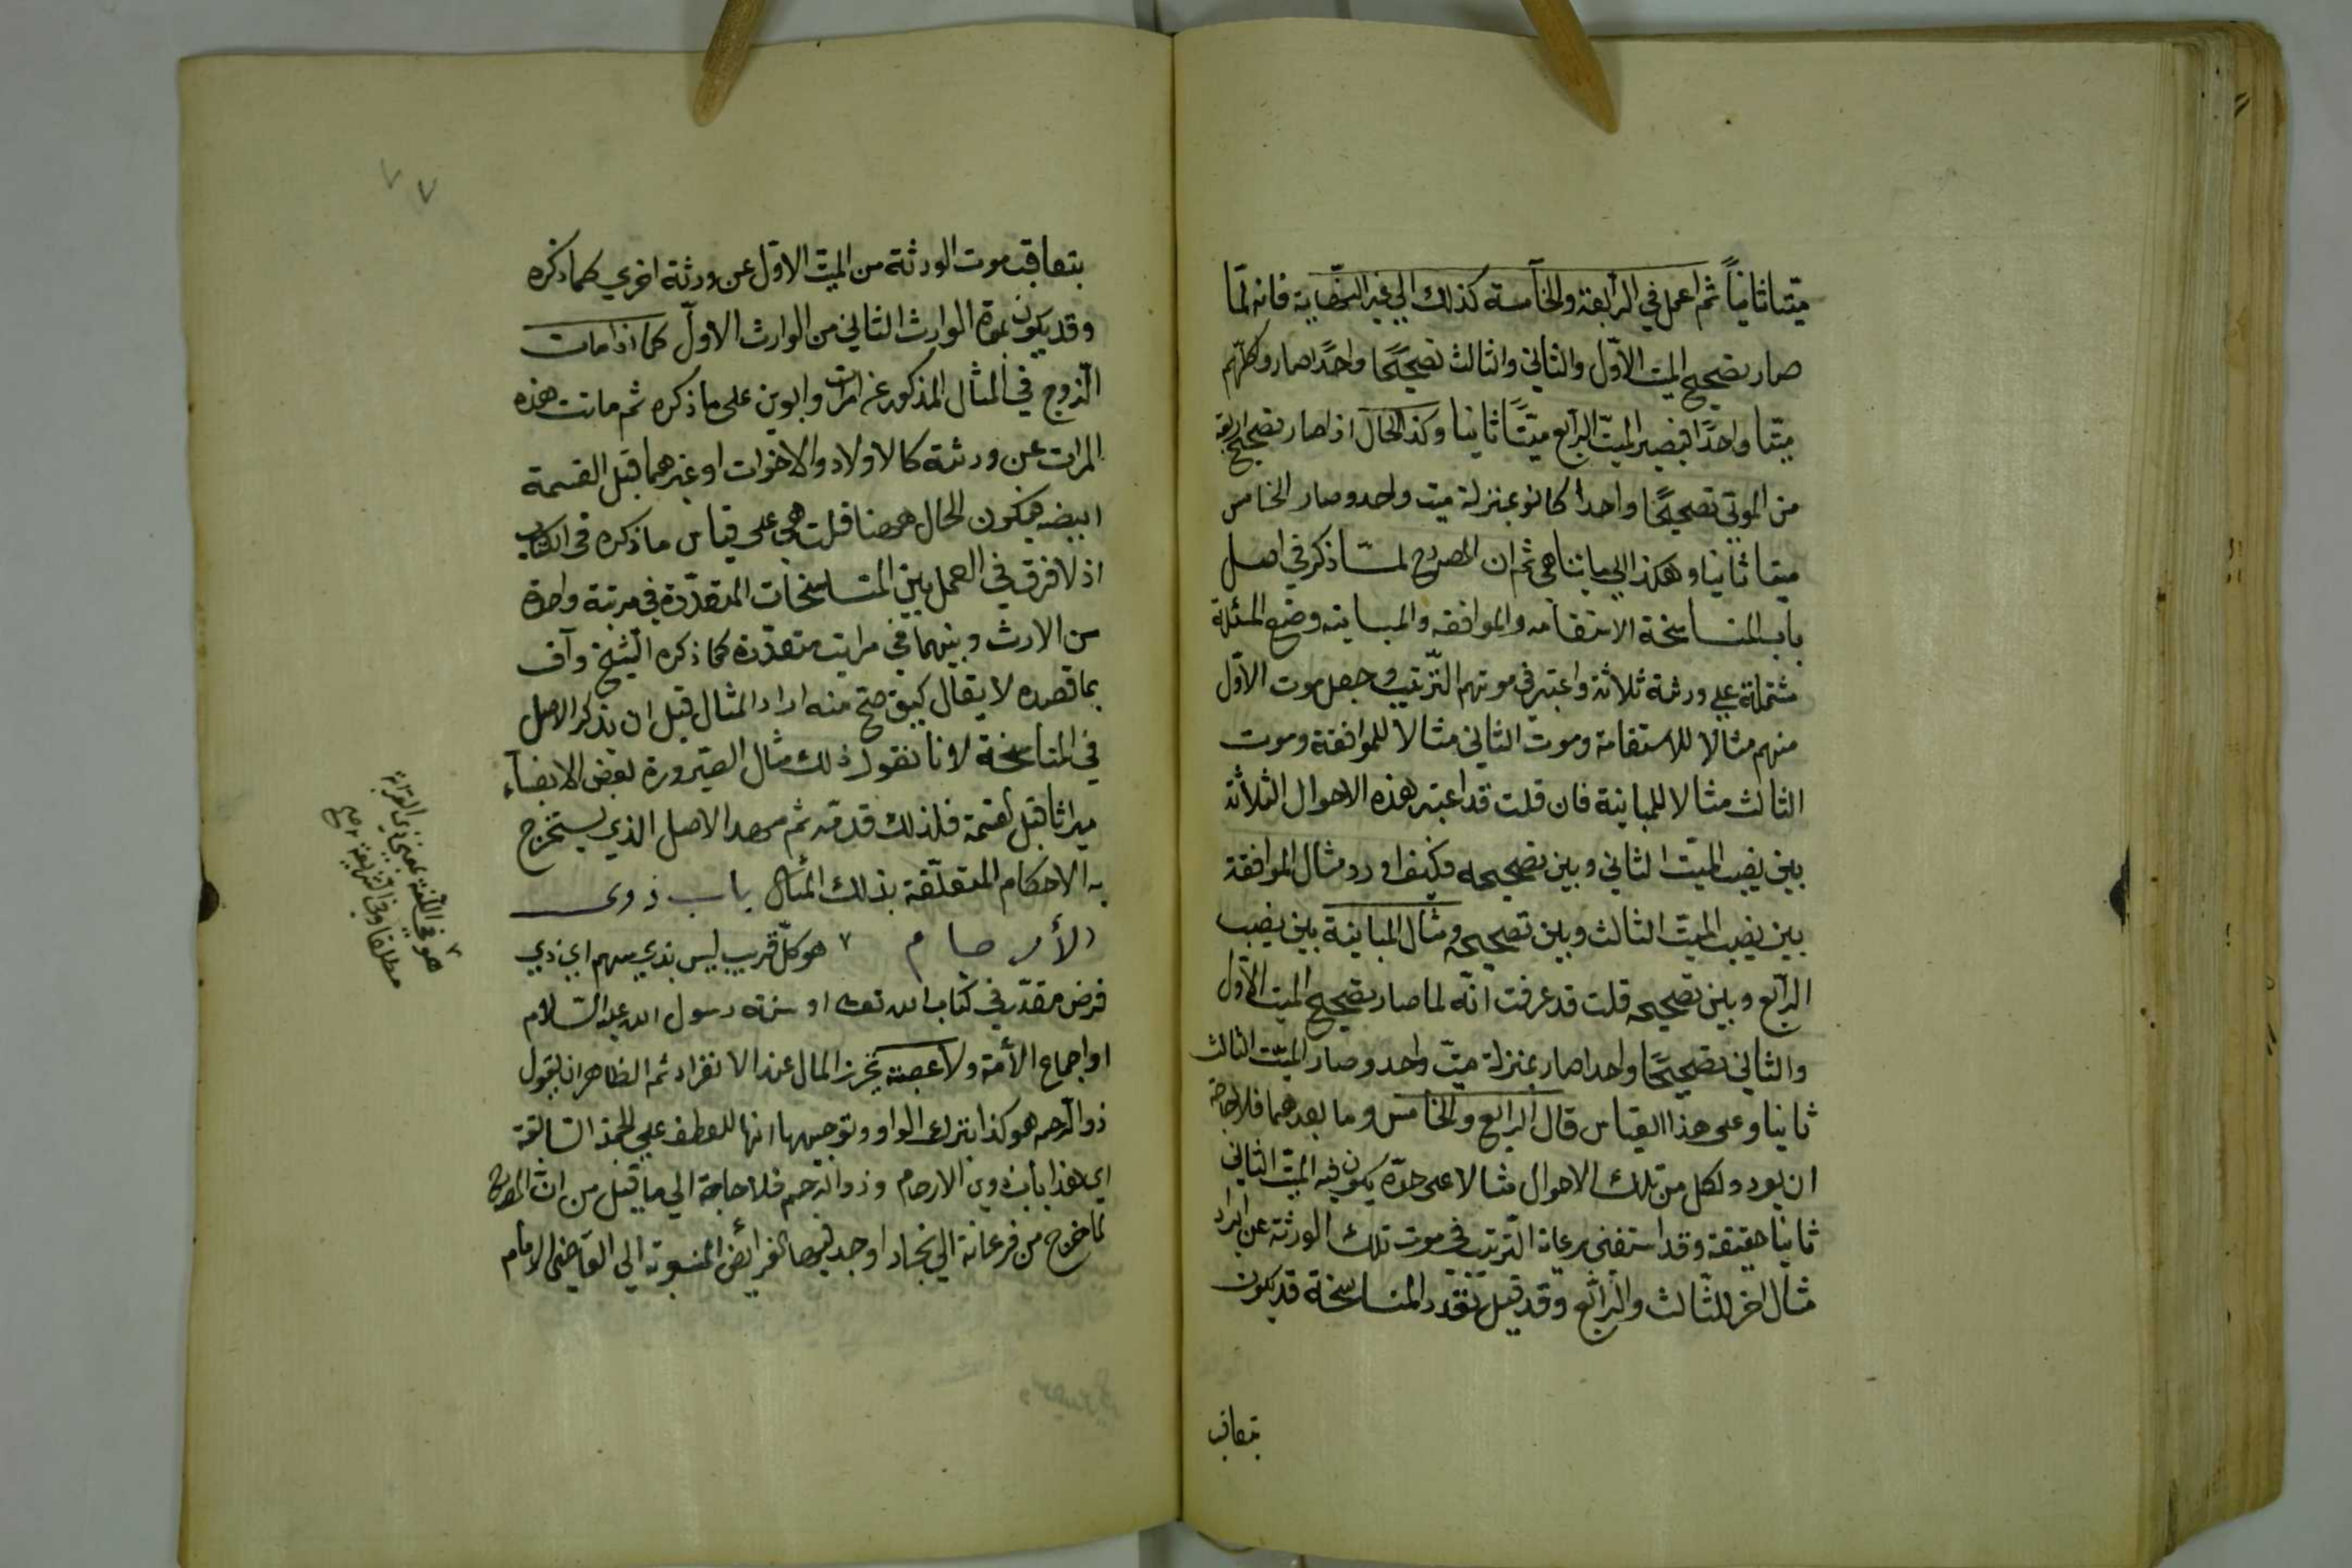 ميّتا ثانياً ثم اعمل في الرابعة والخامسة كذلك الي غير النهّاية فانه لمّا
صار تصحيح الميت الاوّل والثاني والثالث تصحيحًا واحدًا صار وكلّهم
ميّتا واحدًا فيصير الميتّ الرابع ميتًّا ثانيا وكذا الحال اذا صار تصحيح اربعة
من الموتي تصحيحًا واحدا كانو بمنزلة ميت واحد وصار الخامس
ميتا ثانيا وهكذا الي ما يتناهي ثم ان المصرح لمّا ذكر في اصل
باب المناسخة الاستقامه والموافقه والمباينه وضع المسئلة
مشتملة علي ورثة ثلاثة واعتبر في موتهم الترّتيب وجعل موت الاوّل
منهم مثالا للاستقامة وموت الثاني مثالا للموافقة وموت
الثالث مثالا للمباينة فان قلت قد اعتبر هذه الاحوال الثلاثة
بين نصيب الميّت الثاني وبين تصحيحه فكيف اورد مثال الموافقة
بين نصيب الميّت الثالث وبين تصحيحه ومثال المباينة بين نصيب
الرابع وبين تصحيحه قلت قد عرفت انّه لما صار تصحيح الميت الاوّل
والثاني تصحيحًا واحدا صار بمنزلة ميّت واحد وصار الميّت الثالث
ثانيا وعلى هذا القياس قال الرابع والخامس وما بعدهما فلا حاجة
ان يورد ولكل من تلك الاحوال مثالا على حدّة يكون فيه الميّت الثاني
ثانيا حقيقة وقد استغني برعاية الترّتيب في موت تلك الورثة عن ايراد
مثال اخر للثّالث والرابع وقد قيل تعدد المناسخة قد يكون
بتعاقب
٧٧
بتعاقب موت الورثة من الميّت الاوّل عن ورثة اخري كما ذكره
وقد يكون بموة الوارث الثاني من الوارث الاولّ كما اذا مات
الزّوج في المثال المذكور عن امرات وابوين على ما ذكره ثم ماتت هذه
المرات عن ورثة كالاولاد والاخوات او غيرهما قبل القسمة
ايضه فيكون الحال ههنا قلت هي على قياس ما ذكره في الكتاب
اذ لا فرق في العمل بين المناسخات المتعدّدة في مرتبة واحدة
من الارث وبينهما في مراتب متعدّدة كما ذكره الشّيخ وآف
بما قصده لا يقال كيف صحّ منه اراد المثال قبل ان يذكر الاصل
في المناسخة لانا نقول ذلك مثال الصيرورة بعض الانصبآء
ميراثا قبل لقسمة فلذلك قدمه ثم مهد الاصل الذي يستخرج
به الاحكام المتعلّقة بذلك المثال باب ذوى
الأرحام ٧ هو كلّ قريب ليس بذي سهم اي ذي
فرض مقدّر في كتاب الله تعالى او سنة رسول الله عليه السّلام
او اجماع الأمة ولا عصبة يحرز المال عند الانفراد ثم الظاهر ان يقول
ذو الرّحم هو كذا بترك الواو وتوجيهها انها للعطف علي الجمله السّابقة
اي هذا باب ذوي الارحام وذو الرّحم فلا حاجة الي ما قيل من ان المصرح
لما خرج من فرغانة الي بخارا وجد فيها الفرائض المنسوبة الي القاضى الامام
٧ هو في اللّغة بمعني ذي القرابة
مطلقا وفي الشّريعة